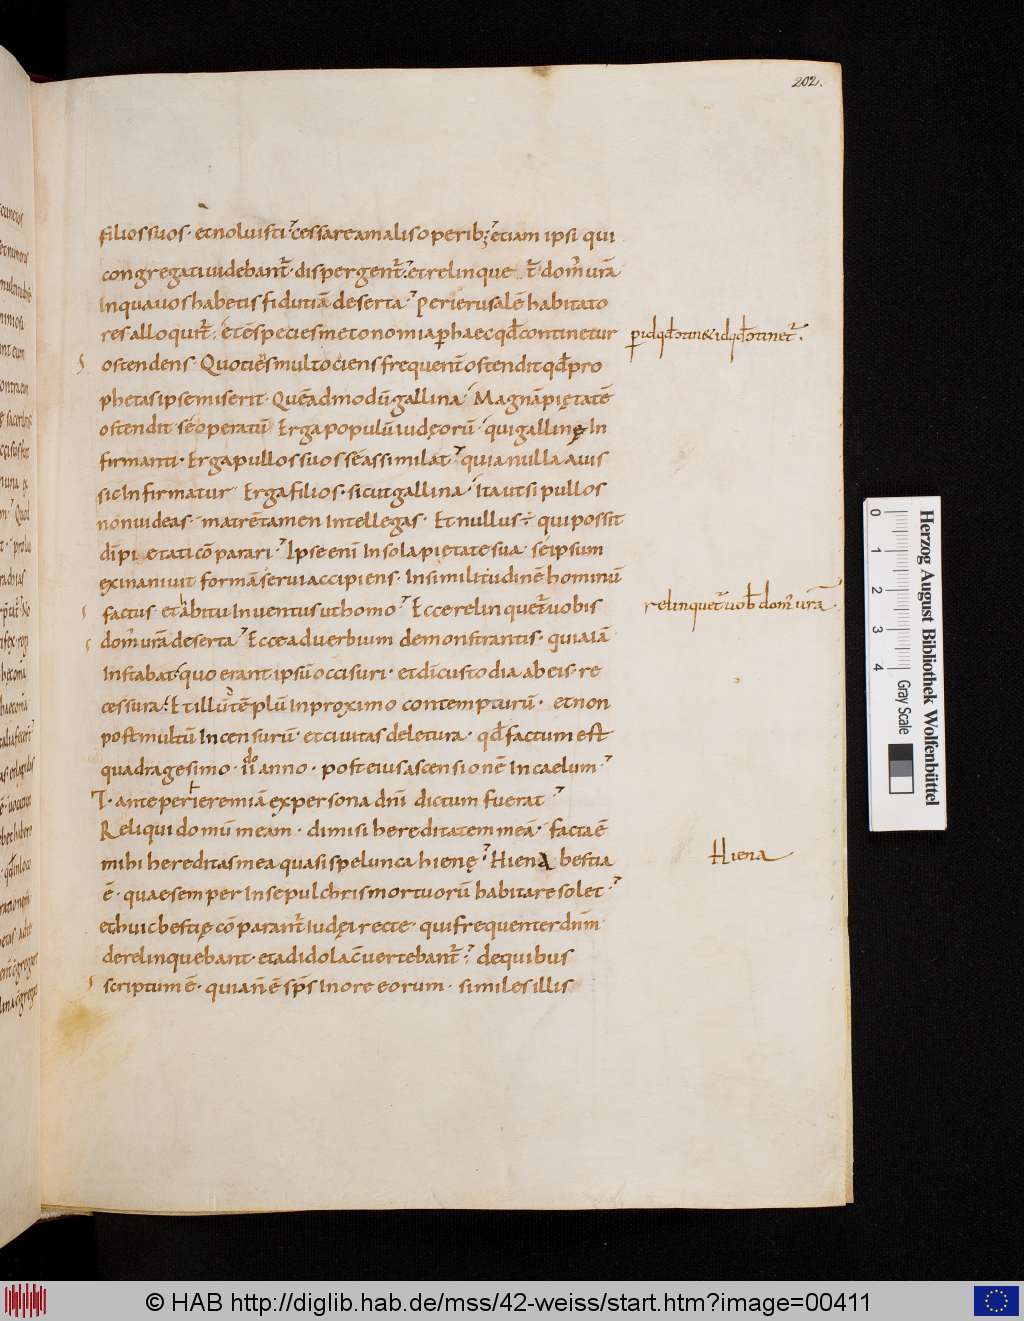 202.
filios suos · et noluisti ? cessare a malis operib; ? etiam ipsi qui
congregati uidebant̄ · dispergent̄ ? et relinque t̄ dom᷒ ur̄a
In qua uos habetis fidutiā deserta ? per ierusalē habitato
res alloquit̄ : ētē species metonomia ꝑ haec qđ continetur
ostendens · Quotiēs multociens frequent̄ ostendit qđ pro
phetas ipse miserit · Quēadmodū gallina · Magnā pi&ęatē
ostendit sē operatū Erga populū iudęorū · qui gallinę In
firmanti · Erga pullos suos sē assimilat ? quia nulla auis
sic Infirmatur Erga filios · sicut gallina · Ita ut si pullos
non uideas · matrē tamen Intellegas · Et nullus ÷ qui possit
dīpietati cōparari ? Ipse eni Insola pietate sua · seipsum
exinaniuit formā serui accipiens · In similitudinē hominū
factus · et habitu Inuentus ut homo ? Ecce relinquet̄ uobis
dom᷒ ur̄a deserta ? Ecce aduerbium demonstrantis · quia iā
Instabat · quo erant ipsū occisuri · et dī custodia ab eis · re
cessura · Et illū tēplū In proximo contempturū · et non
post multū Incensurū · et ciuitas deletura · qđ factum est
quadragesimo · ii do anno · post eius ascensionē In caelum ?
T · ante per ieremiā ex persona dnī dictum fuerat ?
Reliqui domū meam · dimisi hereditatem meā · facta ē
mihi hereditas mea quasi spelunca hienę ? Hiena bestia
ē · quae semper In sepulchris mortuorū habitare solet · ?
et huic bestię cōparant̄ Iudęi recte · qui frequenter dnm̄
derelinquebant · et ad idola c̄uertebant̄ ? de quibus
scriptum ē · quia ñ ē sp̄s In ore eorum · similes illis
relinquet̄ uob dom᷒ ur̄a ·
Hiena
Herzog August Bibliothek Wolfenbüttel
0 1 2 3 4 Gray Scale
© HAB http://diglib.hab.de/mss/42-weiss/start.htm?image=00411